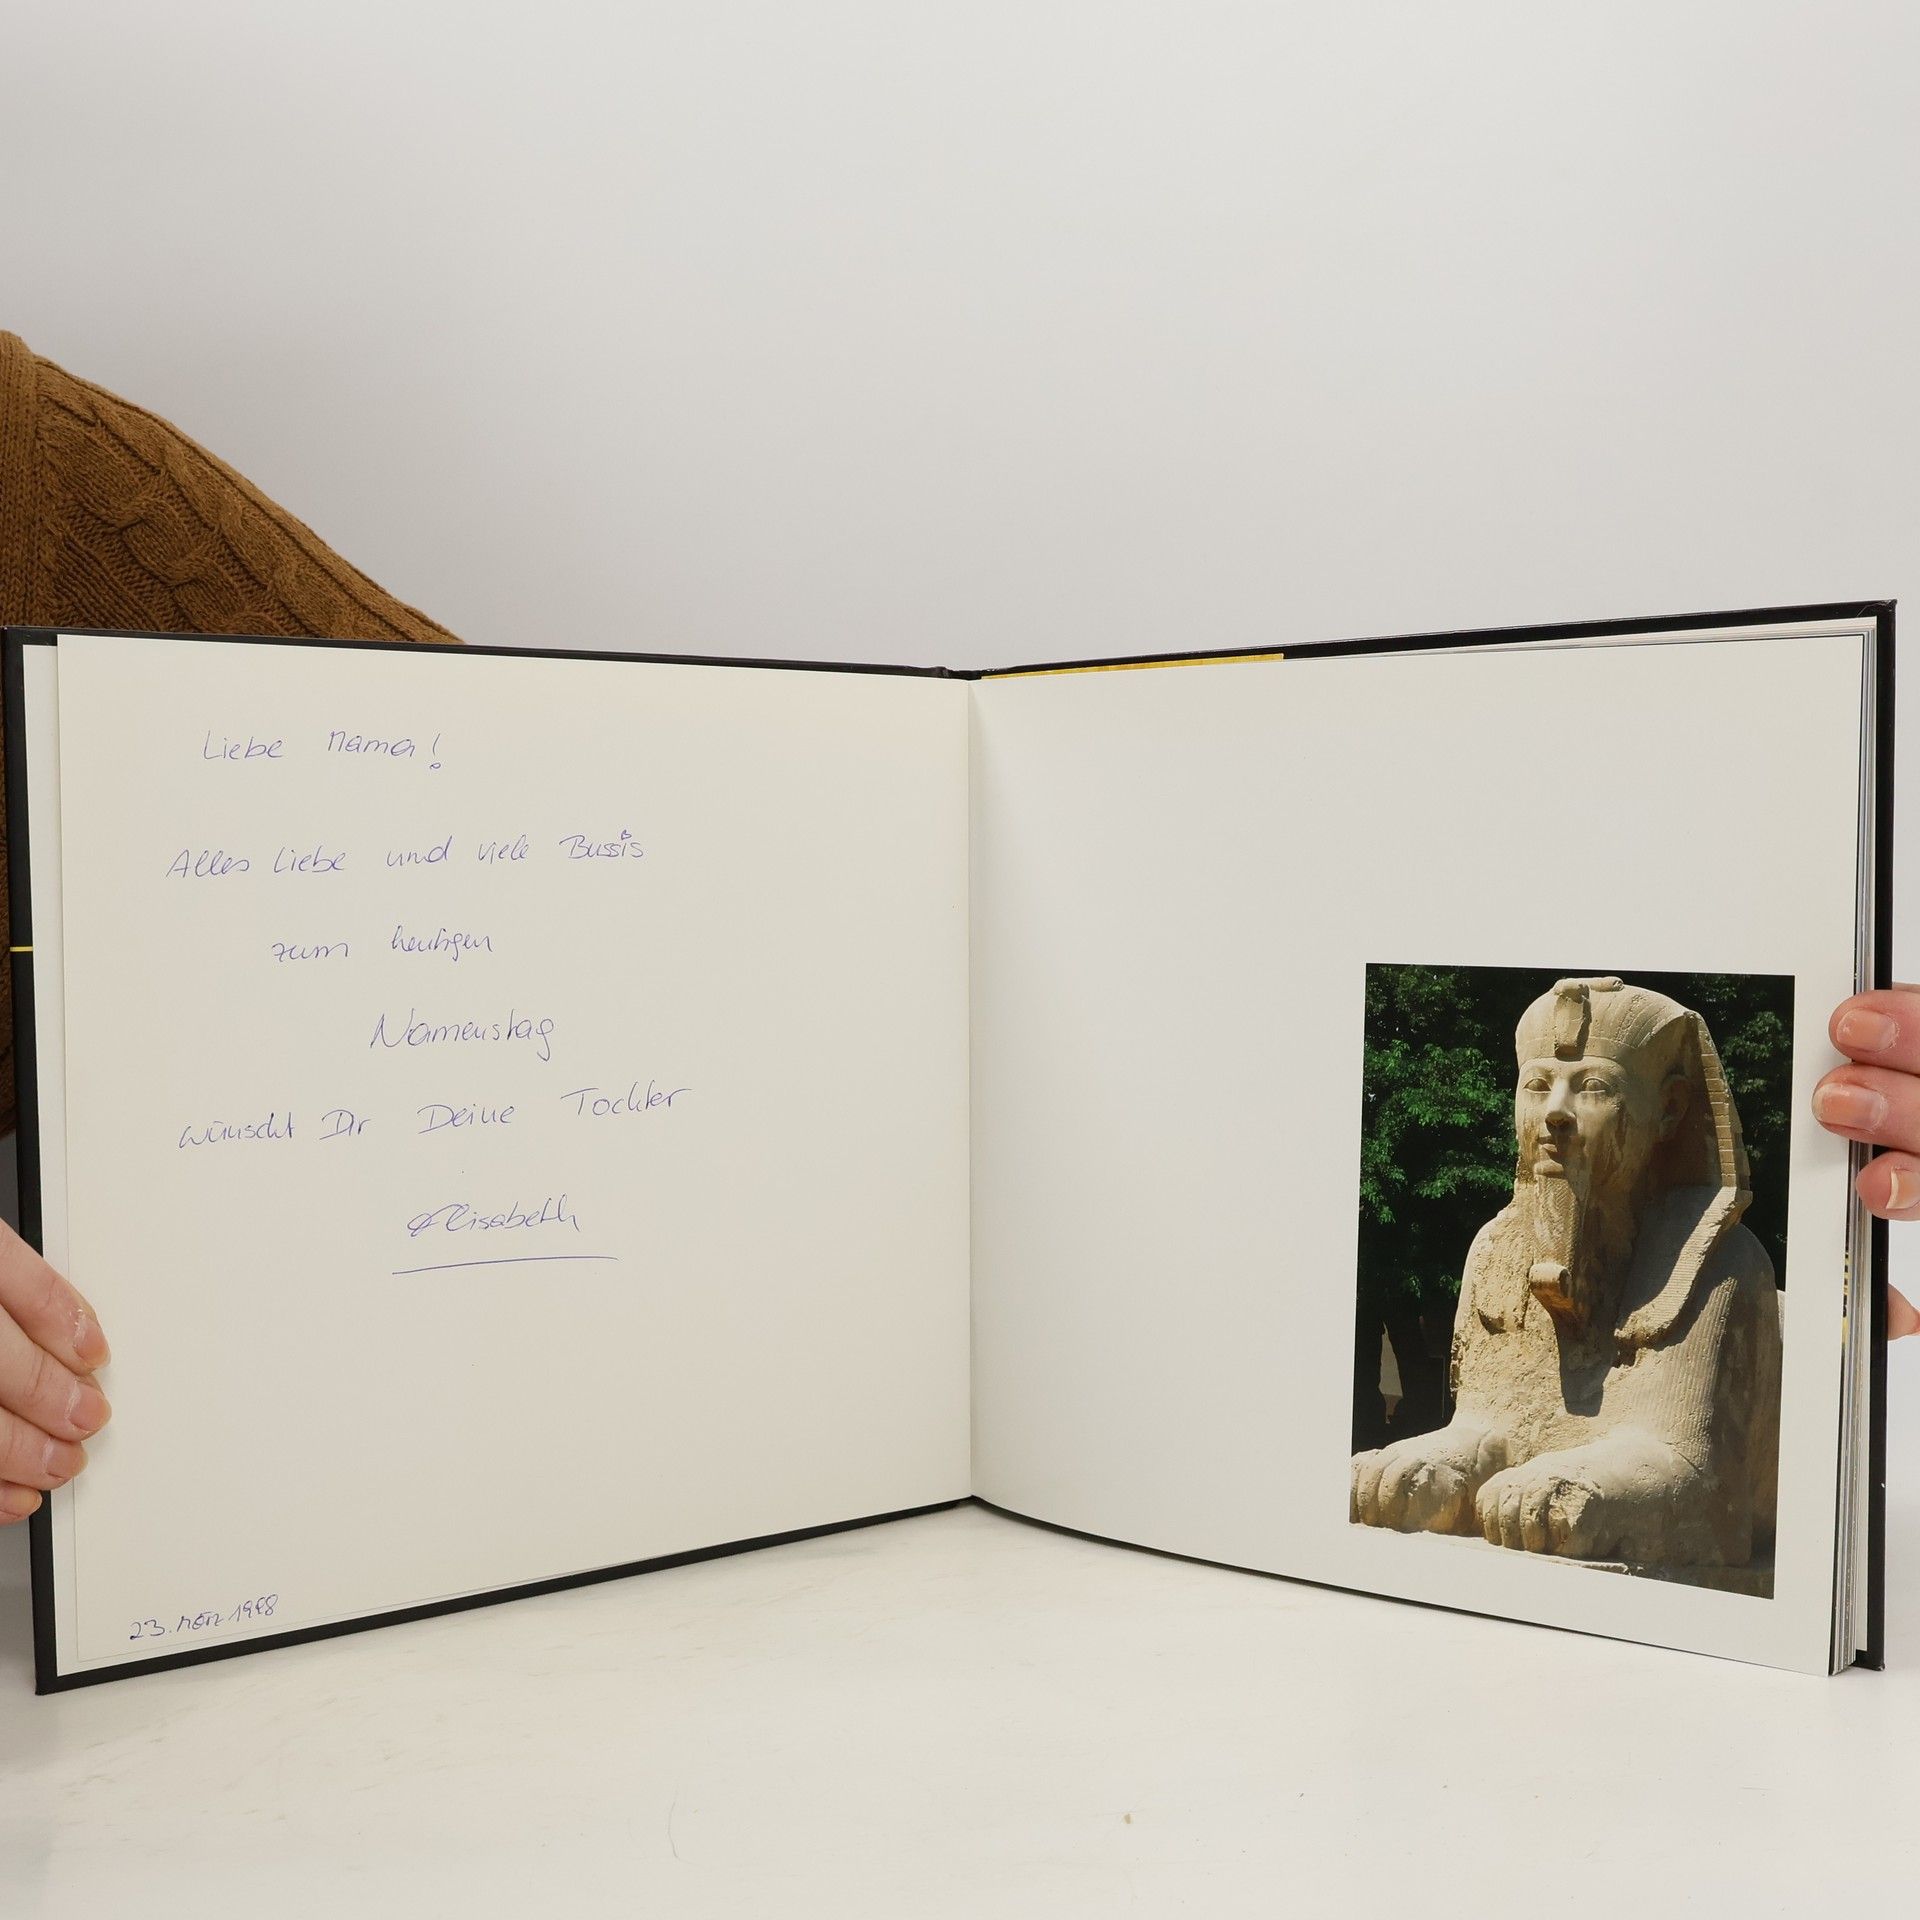 Liebe Mama!
Alles Liebe und viele Bussis
zum heutigen
Namenstag
wünscht Dir Deine Tochter
Elisabeth
23. März 1998